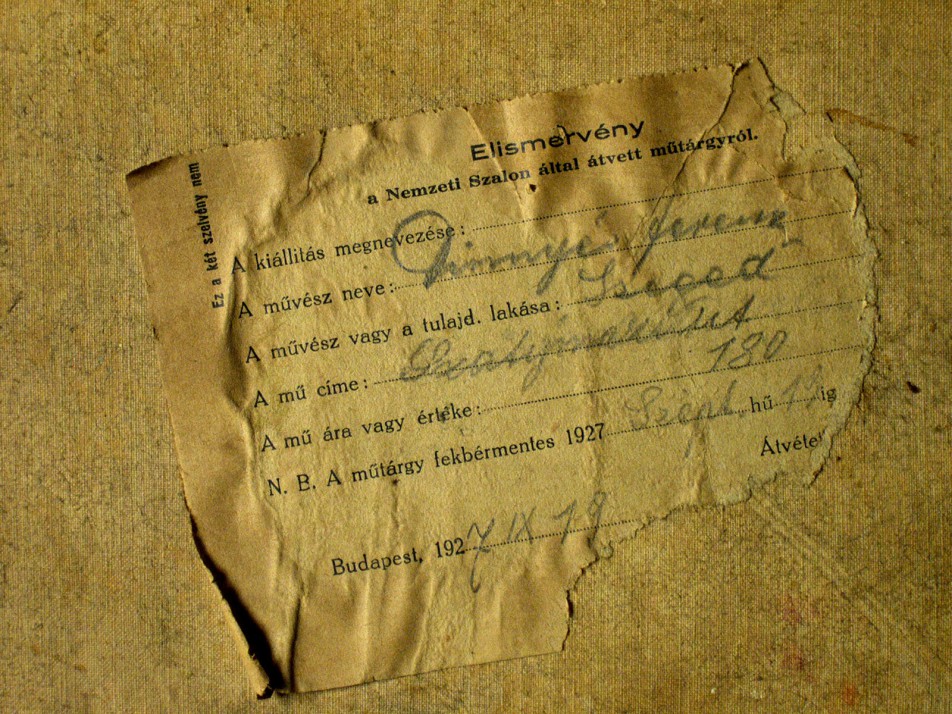 Elismervény
a Nemzeti Szalon által átvett műtárgyról.
Ez a két szelvény nem
A kiállitás megnevezése:
A művész neve: Dinnyés Ferenc
A művész vagy a tulajd. lakása: Szeged
A mű címe:
A mű ára vagy értéke: 180
N. B. A műtárgy fekbérmentes 1927 Szept hű 19 ig
Átvétel
Budapest, 1927 IX 19